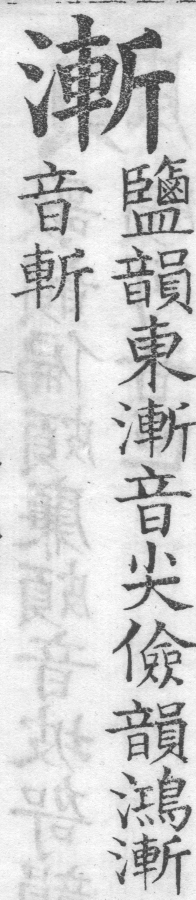 漸
鹽韻東漸音尖儉韻鴻漸
音斬